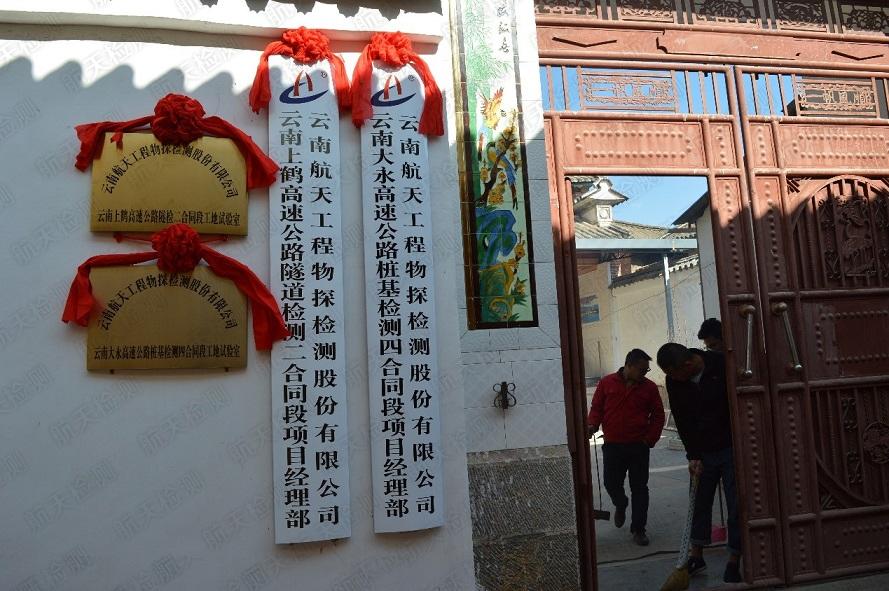 云南航天工程物探检测股份有限公司
云南上鹤高速公路隧检二合同段工地试验室
云南航天工程物探检测股份有限公司
云南大永高速公路桩基检测四合同段工地试验室
云南航天工程物探检测股份有限公司
云南上鹤高速公路隧道检测二合同段项目经理部
云南航天工程物探检测股份有限公司
云南大永高速公路桩基检测四合同段项目经理部
航天检测